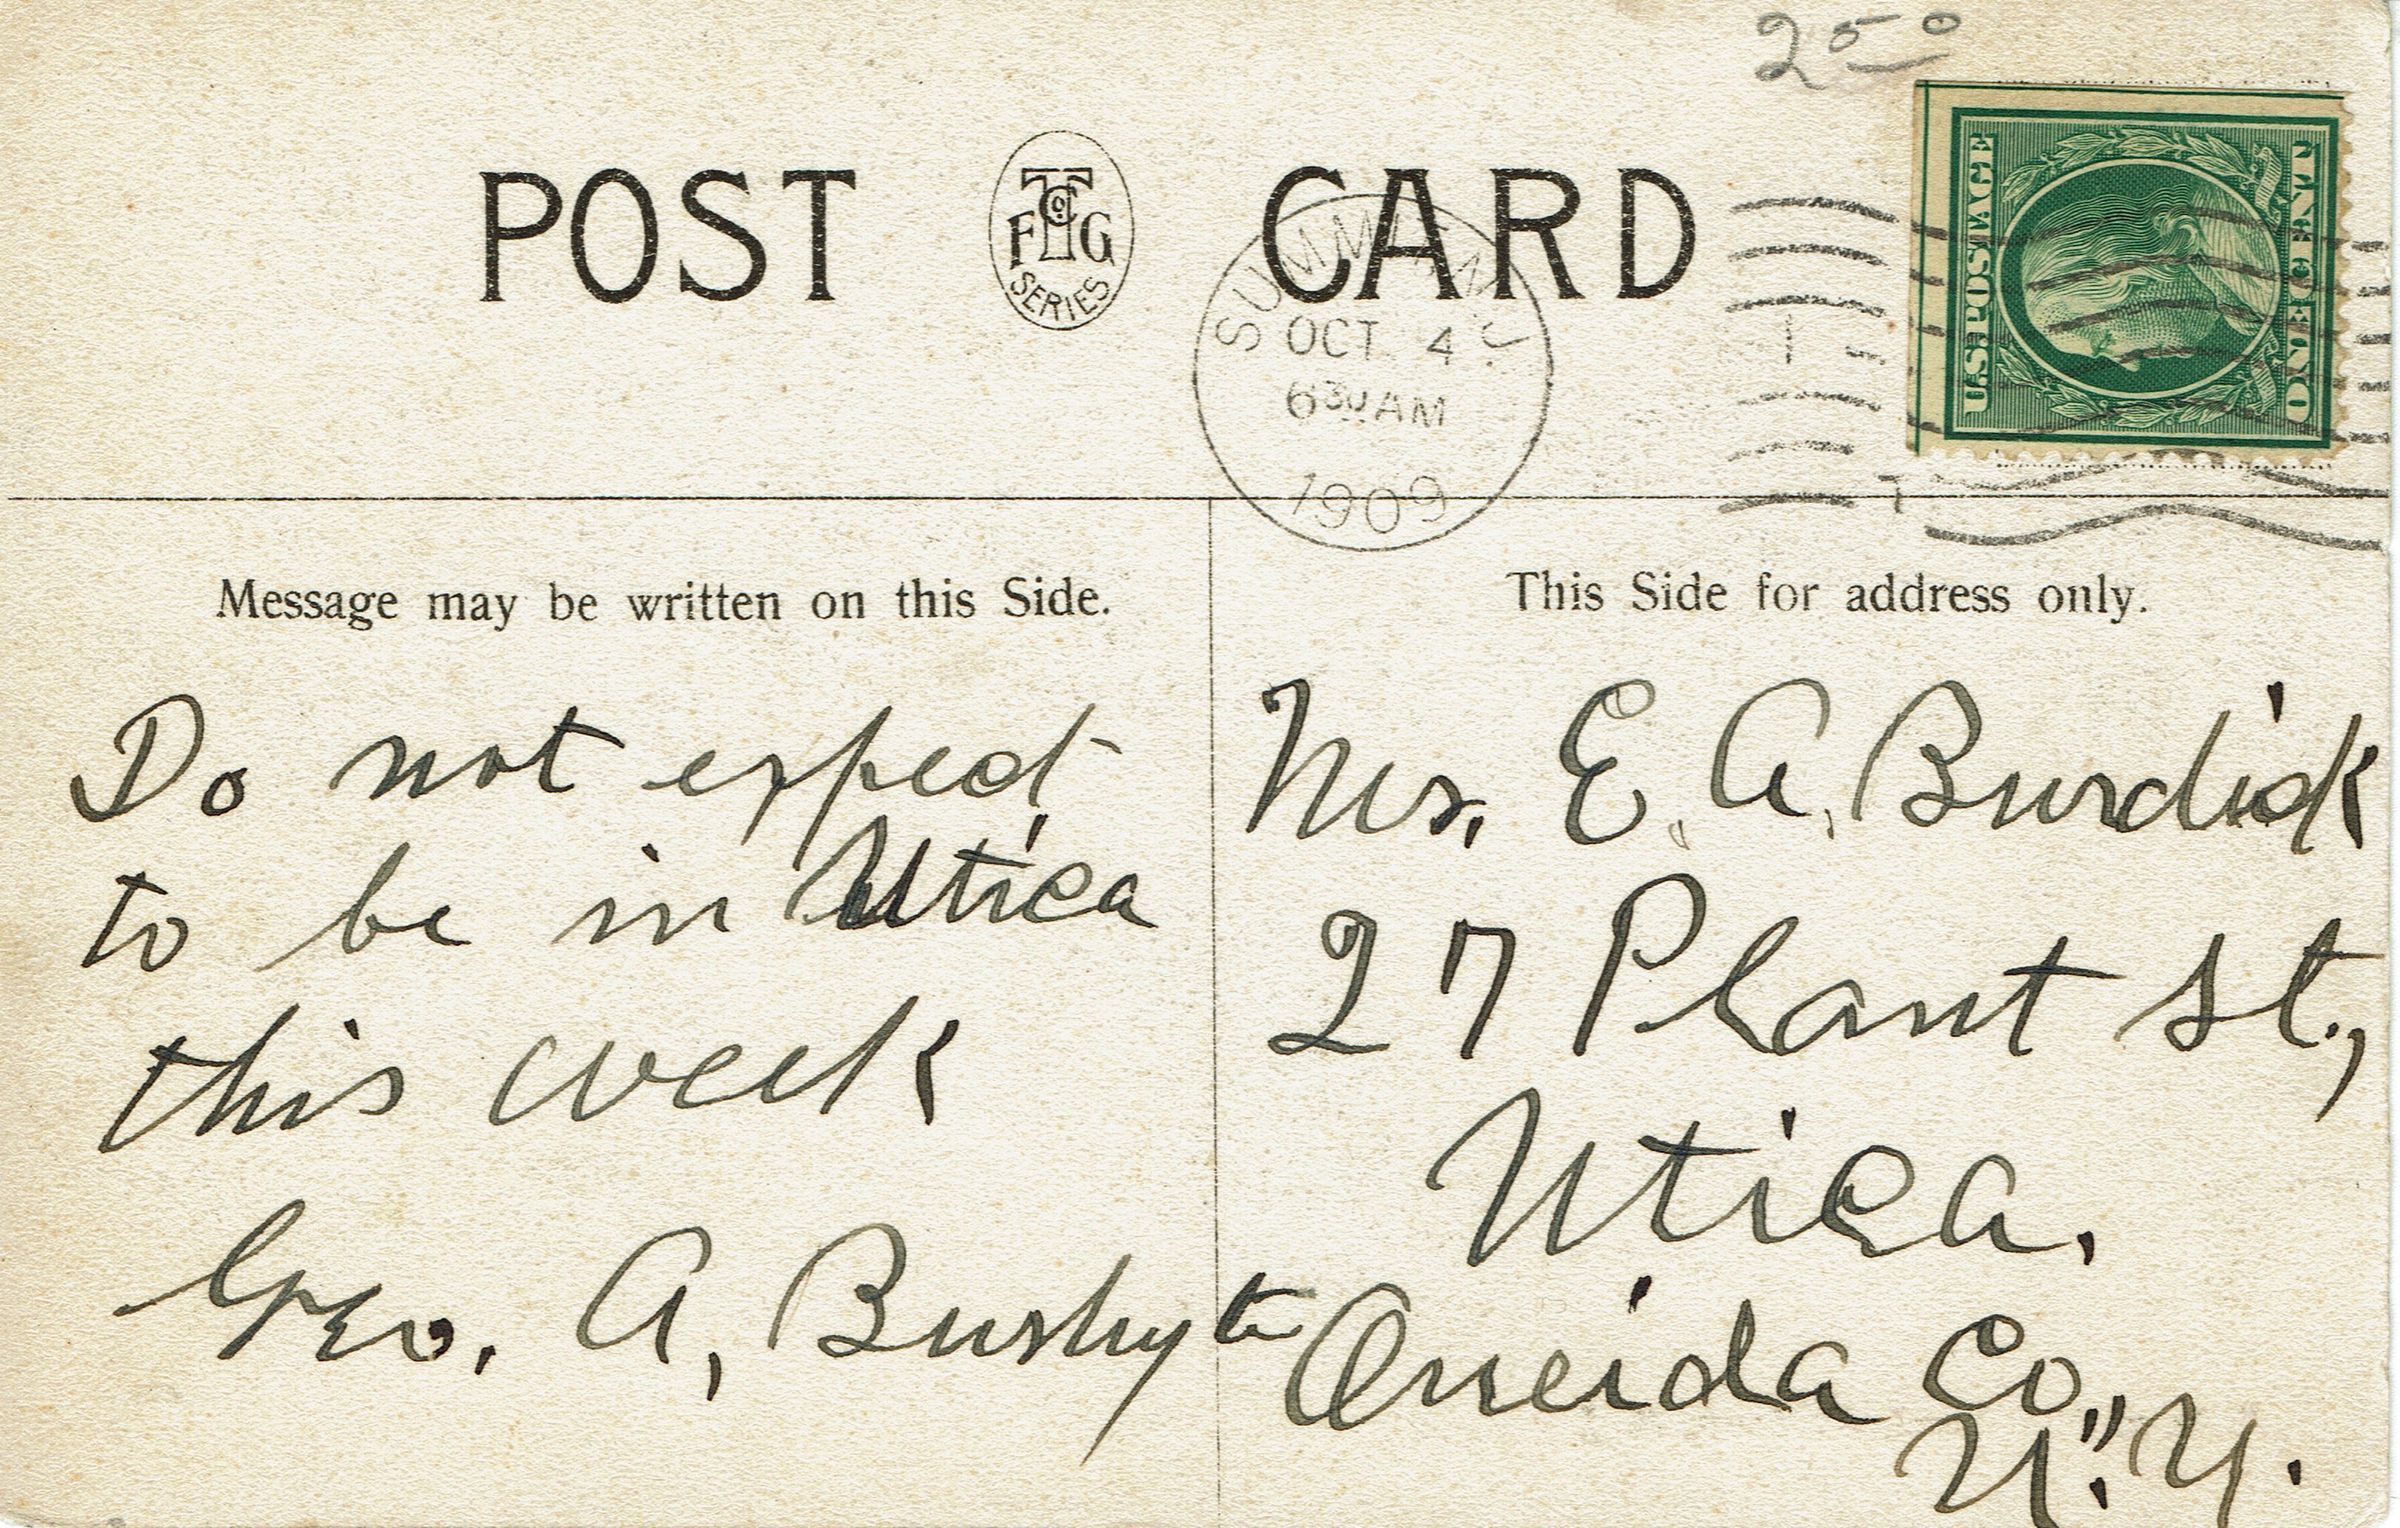 2 50
POST CARD
T Co. F G
SERIES
SUMMIT N.J.
OCT 4
6 30 AM
1909
U.S. POSTAGE
ONE CENT
Message may be written on this Side.
Do not expect
to be in Utica
this week
Geo. A, Bushy
This Side for address only.
Mrs. E. A. Burdick
27 Plant St.,
Utica.
Oneida Co.,
N. Y.